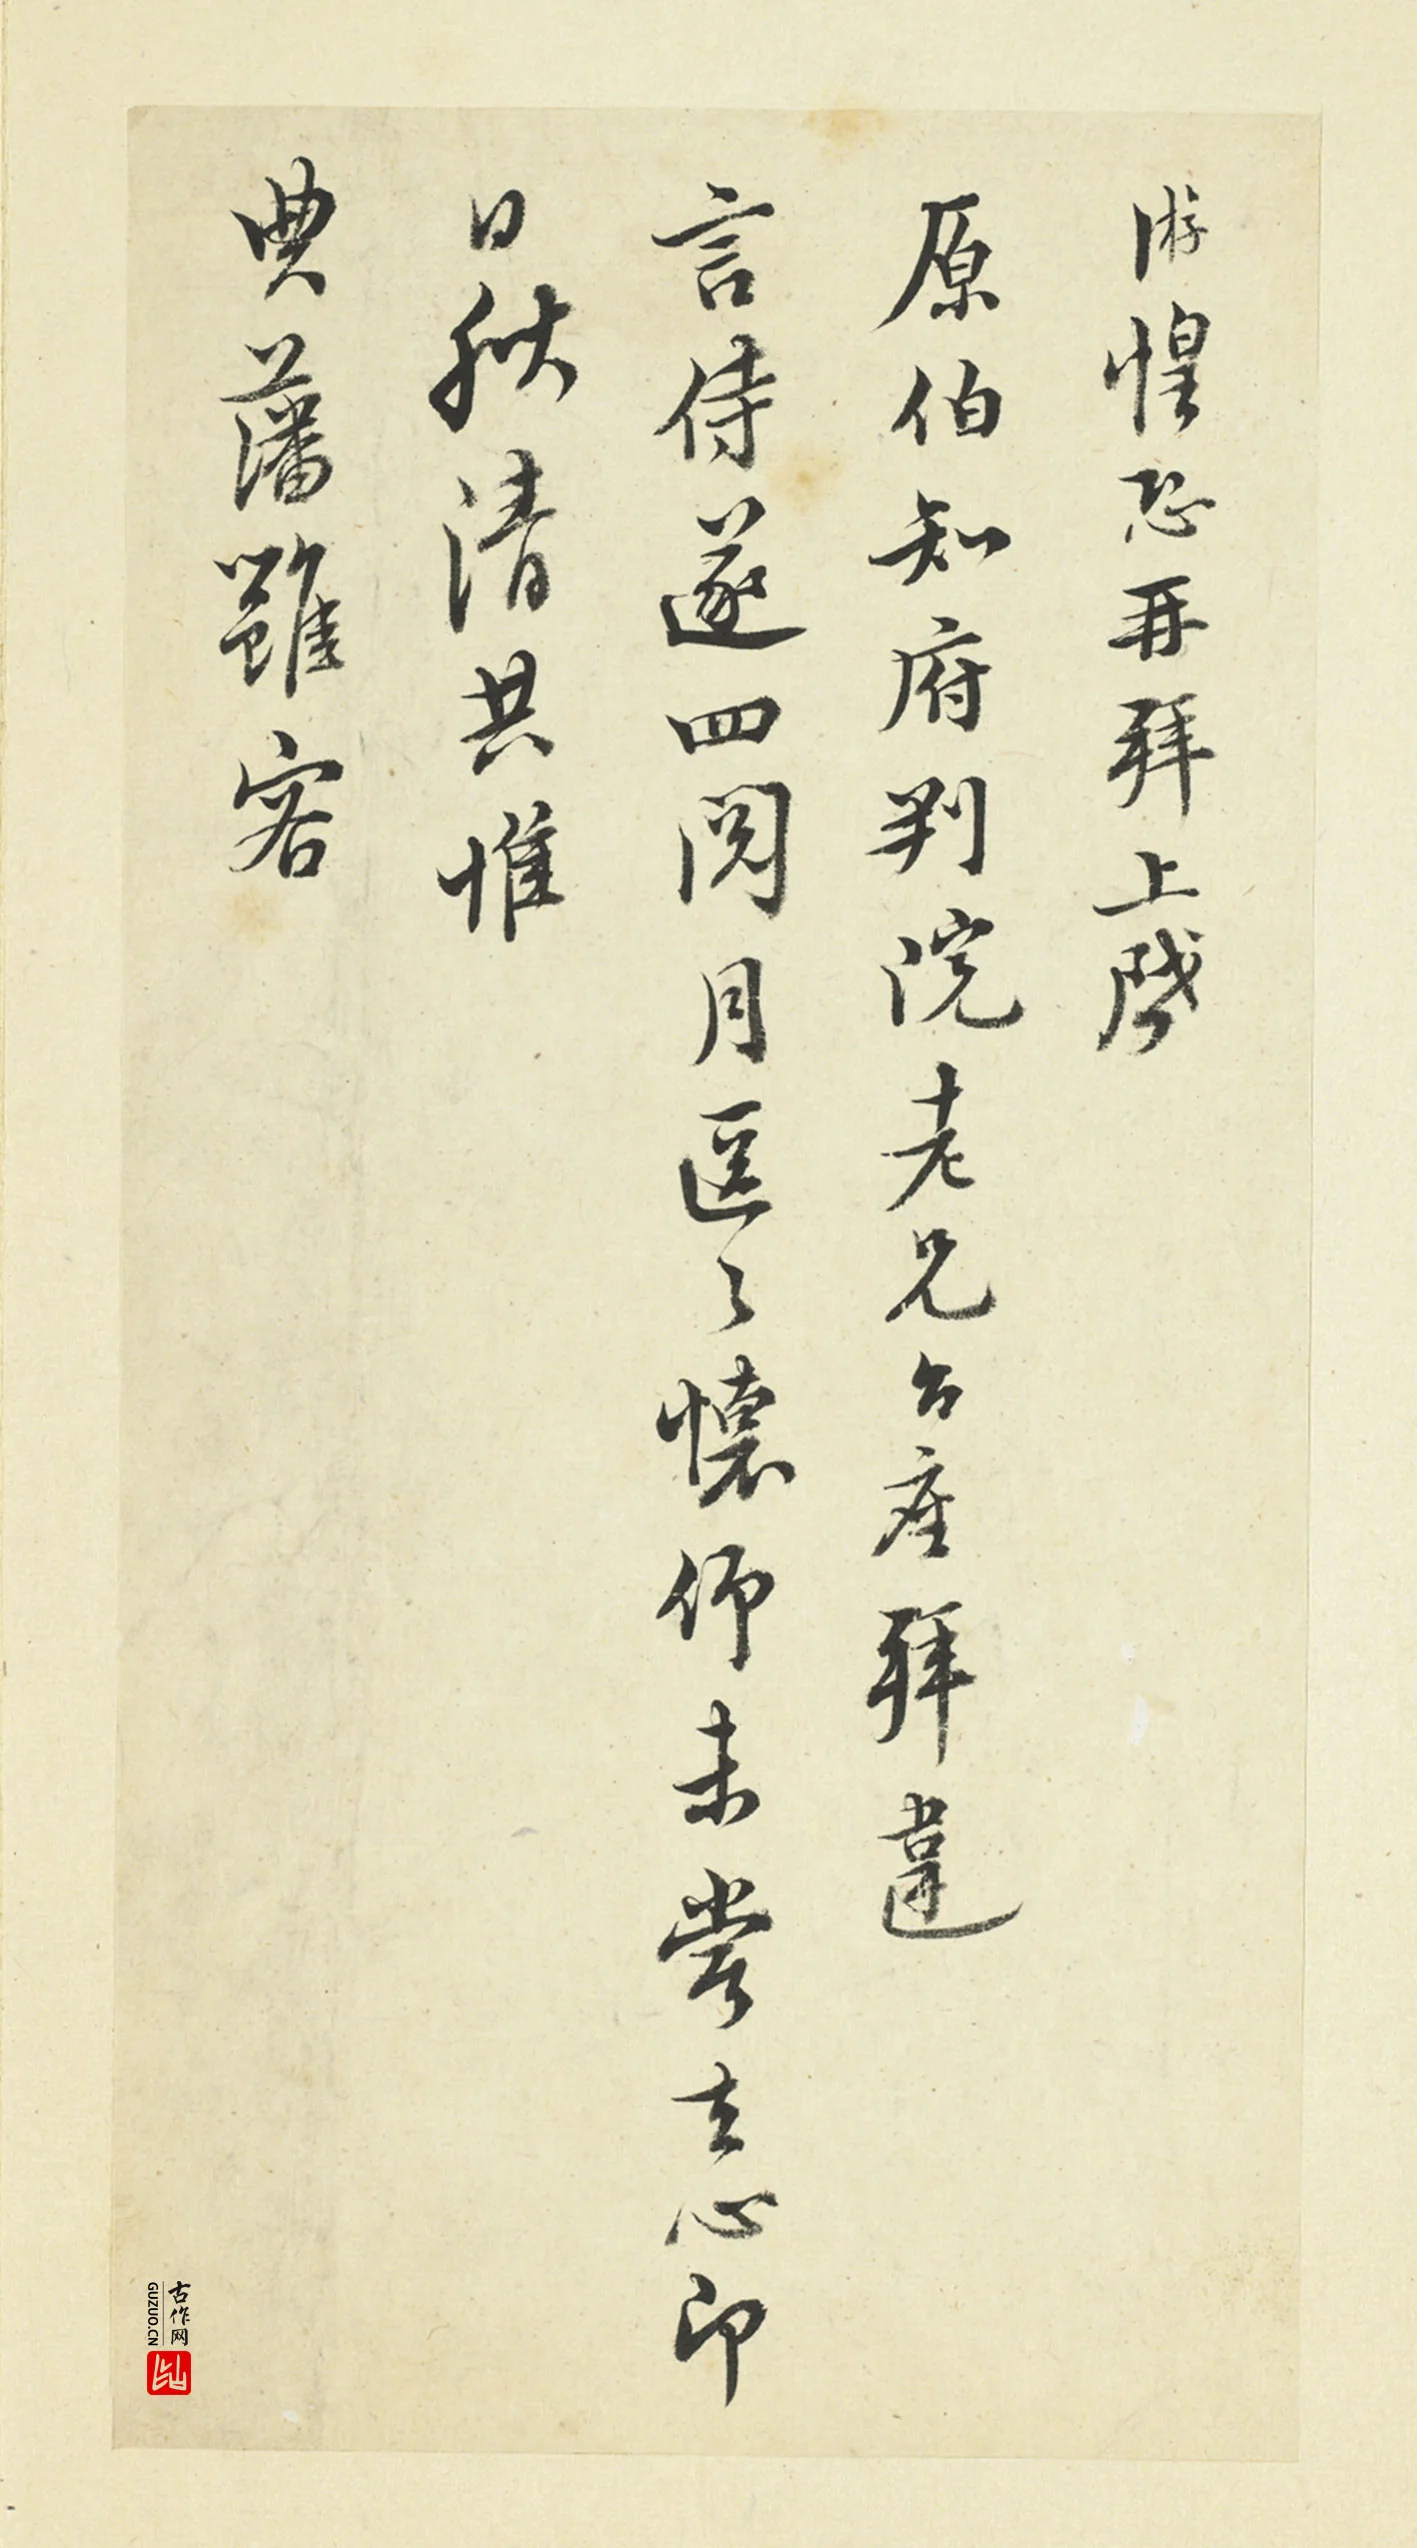 游惶恐再拜上啓
原伯知府判院老兄台座拜違
言侍遂四閱月區々懷仰未嘗去心即
日秋清共惟
典藩雖容
古作网
GUZUO.CN